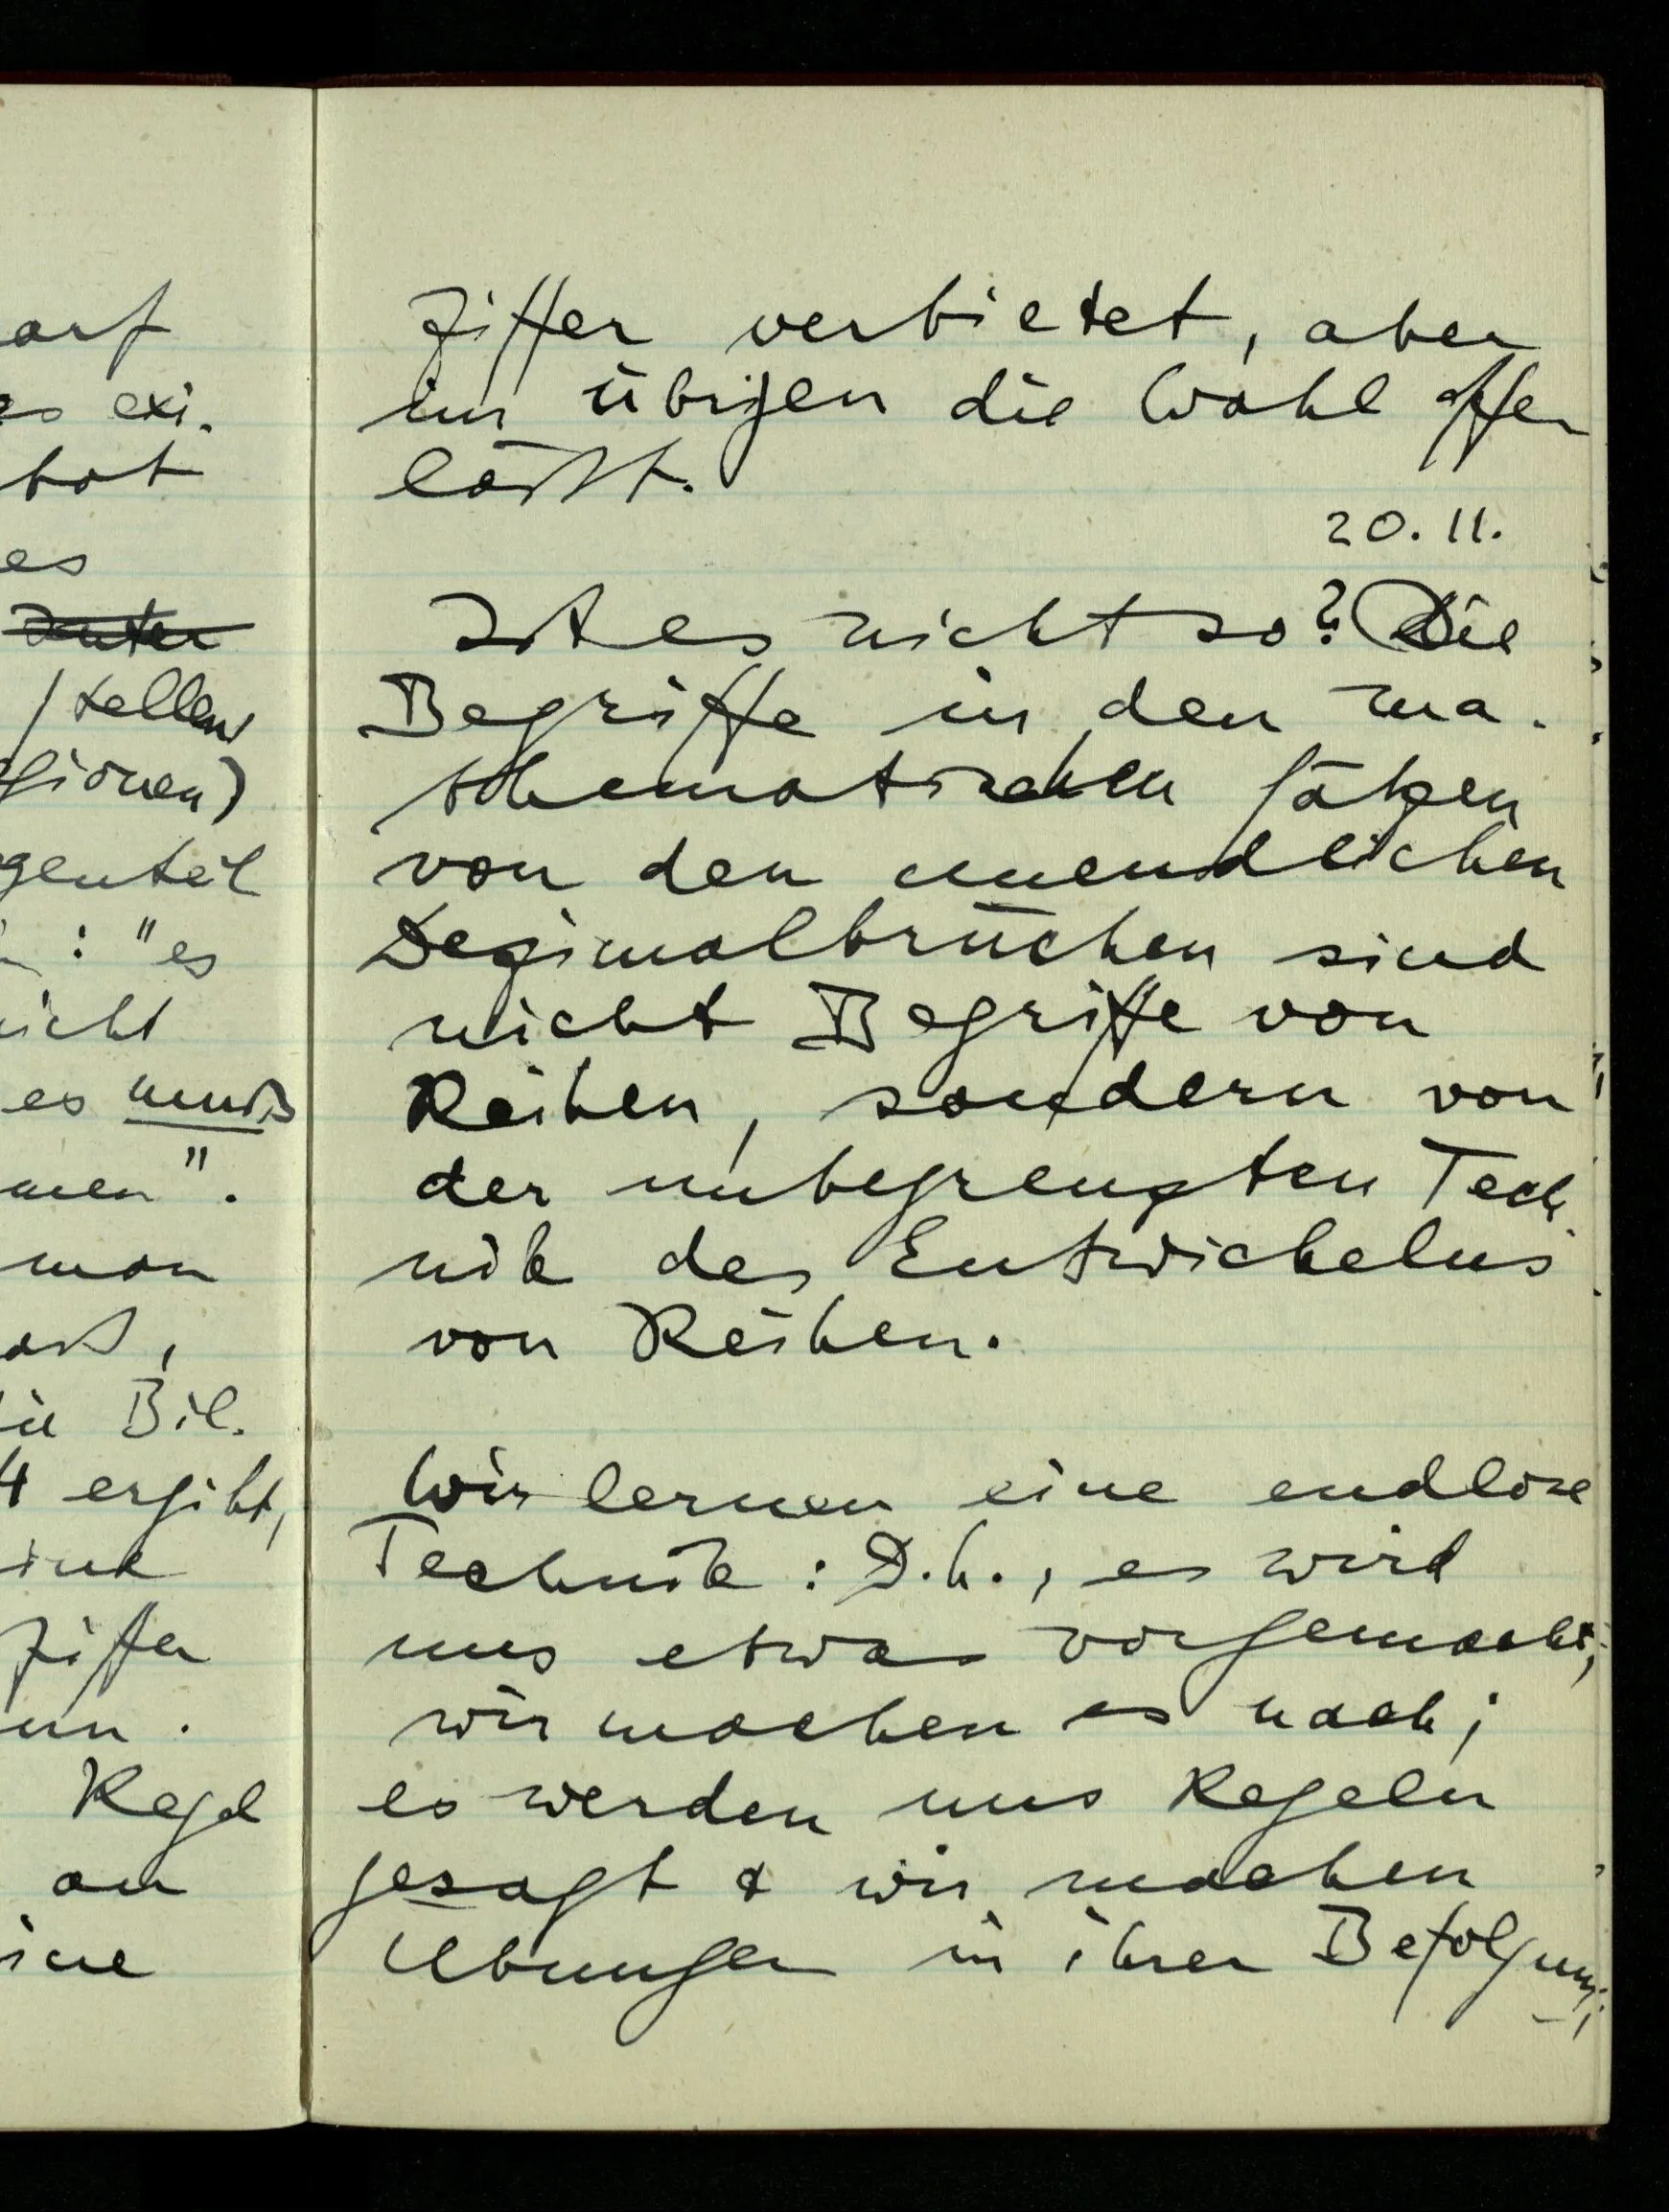 arf
es exi-
bot
es
genteil
: "es
icht
es muß
men".
man
aß,
ie Bil-
ergibt,
ine
Ziffer
nn.
Regel
an
ine
Ziffer verbietet, aber
im übrigen die Wahl offen
läßt.
20. 11.
Ist es nicht so? Die
Begriffe in den ma-
thematischen Sätzen
von den unendlichen
Dezimalbrüchen sind
nicht Begriffe von
Reihen, sondern von
der unbegrenzten Tech-
nik des Entwickelns
von Reihen.
Wir lernen eine endlose
Technik: D.h., es wird
uns etwas vorgemacht,
wir machen es nach;
es werden uns Regeln
gesagt & wir machen
Übungen in ihrer Befolgung;